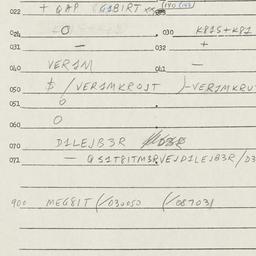 022 + QAP G1BIRT
024 O 030 K815+K81
031 — 032 +
040 VER1M 041 —
050 $ / VER1MKROJT )-VER1MKRU
051 O
060 O
070 D1LEJB3R
071 — QS1T8ITM3RVEJD1LEJB3R/D3
900 MEG8IT (/030050 (/08703)